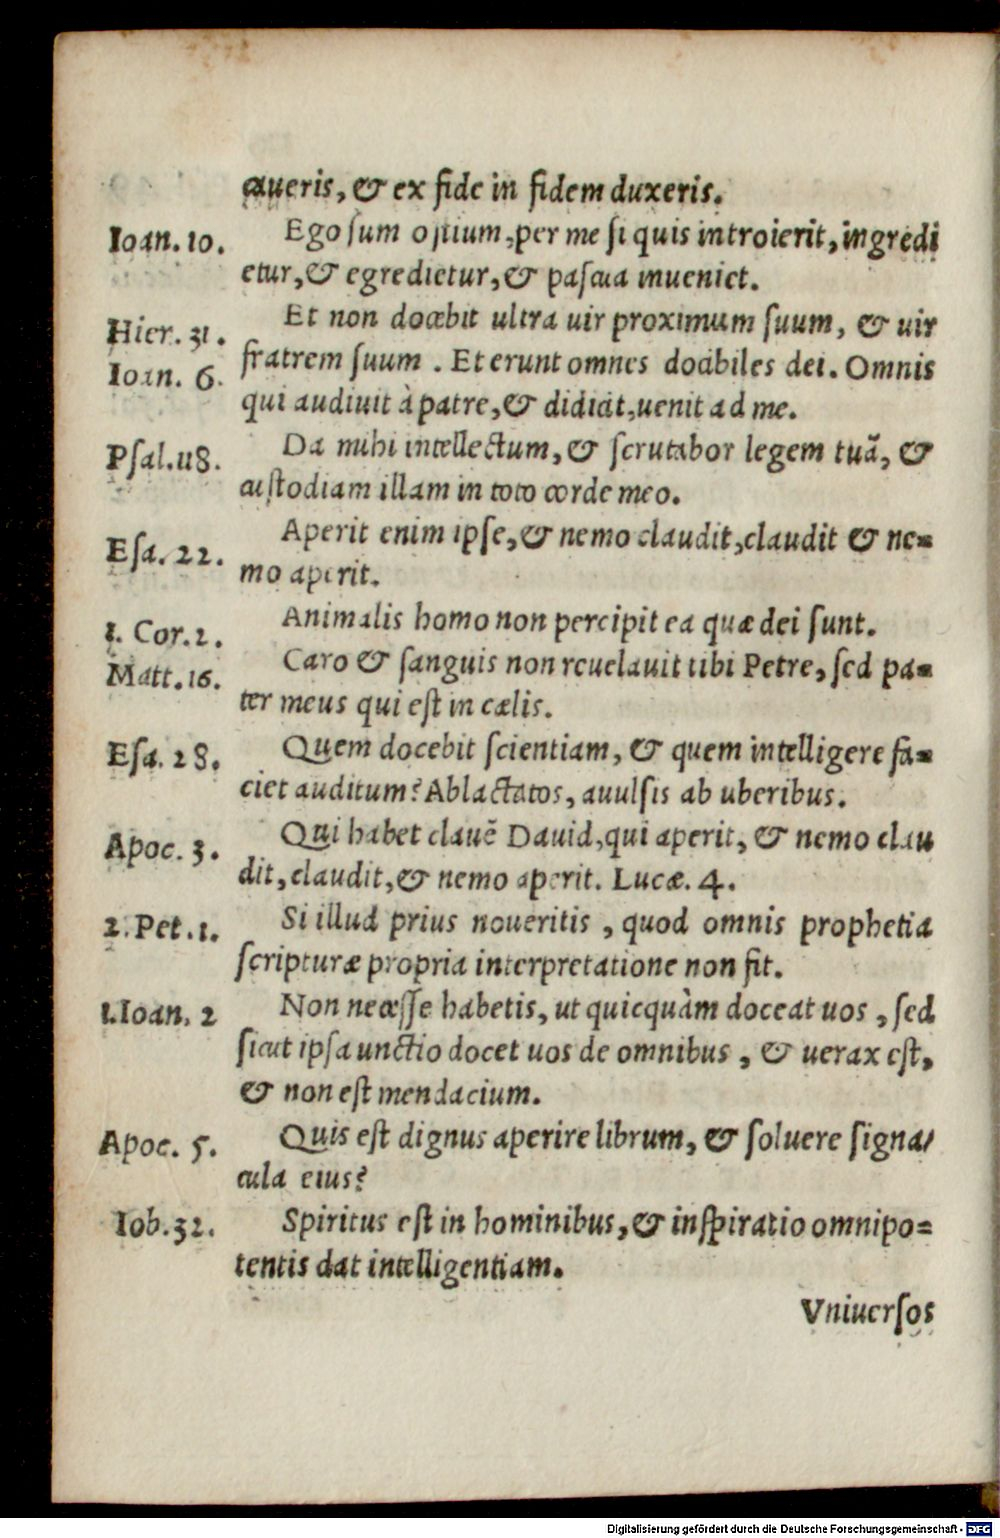 caueris, & ex fide in fidem duxeris.
Ioan. 10. Ego sum ostium, per me si quis introierit, ingredi
etur, & egredietur, & pascua inueniet.
Hier. 31. Et non docebit ultra uir proximum suum, & uir
Ioan. 6. fratrem suum. Et erunt omnes docibiles dei. Omnis
qui audiuit à patre, & didicit, uenit ad me.
Psal. 118. Da mihi intellectum, & scrutabor legem tuã, &
custodiam illam in toto corde meo.
Esa. 22. Aperit enim ipse, & nemo claudit, claudit & ne=
mo aperit.
1. Cor. 2. Animalis homo non percipit ea quæ dei sunt.
Matt. 16. Caro & sanguis non reuelauit tibi Petre, sed pa=
ter meus qui est in cælis.
Esa. 28. Quem docebit scientiam, & quem intelligere fa=
ciet auditum? Ablactatos, auulsis ab uberibus.
Apoc. 3. Qui habet clauẽ Dauid, qui aperit, & nemo clau
dit, claudit, & nemo aperit. Lucæ. 4.
2. Pet. 1. Si illud prius noueritis, quod omnis prophetia
scripturæ propria interpretatione non fit.
1. Ioan. 2 Non necesse habetis, ut quicquàm doceat uos, sed
sicut ipsa unctio docet uos de omnibus, & uerax est,
& non est mendacium.
Apoc. 5. Quis est dignus aperire librum, & soluere signa/
cula eius?
Iob. 32. Spiritus est in hominibus, & inspiratio omnipo=
tentis dat intelligentiam.
Vniuersos
Digitalisierung gefördert durch die Deutsche Forschungsgemeinschaft - DFG